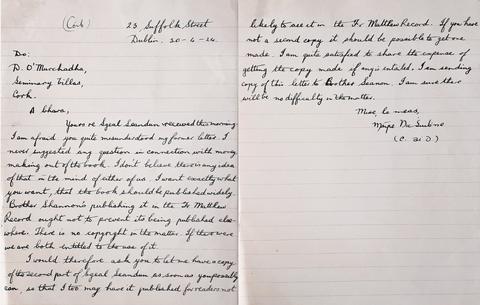 (Cork) 23 Suffolk Street
Dublin. 30-6-24.
Do:
D. O'Murchadha,
Seminary Villas,
Cork.
A chara,
Yours re Sgeal Seandun received this morning
I am afraid you quite misunderstood my former letter. I
never suggested any question in connection with money
making out of the book. I don't believe there is any idea
of that in the mind of either of us. I want exactly what
you want, that the book should be published widely.
Brother Shannon's publishing it in the Fr Matthew
Record ought not to prevent its being published else-
where. There is no copyright in the matter. If there were
we are both entitled to the use of it.
I would therefore ask you to let me have a copy
of the second part of Sgeal Seandun as soon as you possibly
can, so that I too may have it published for readers not
likely to see it in the Fr Matthew Record. If you have
not a second copy it should be possible to get one
made. I am quite satisfied to share the expense of
getting the copy made if any is entailed. I am sending
copy of this letter to Brother Seanon. I am sure there
will be no difficulty in the matter.
Mise, le meas,
Máire Ní Suibne